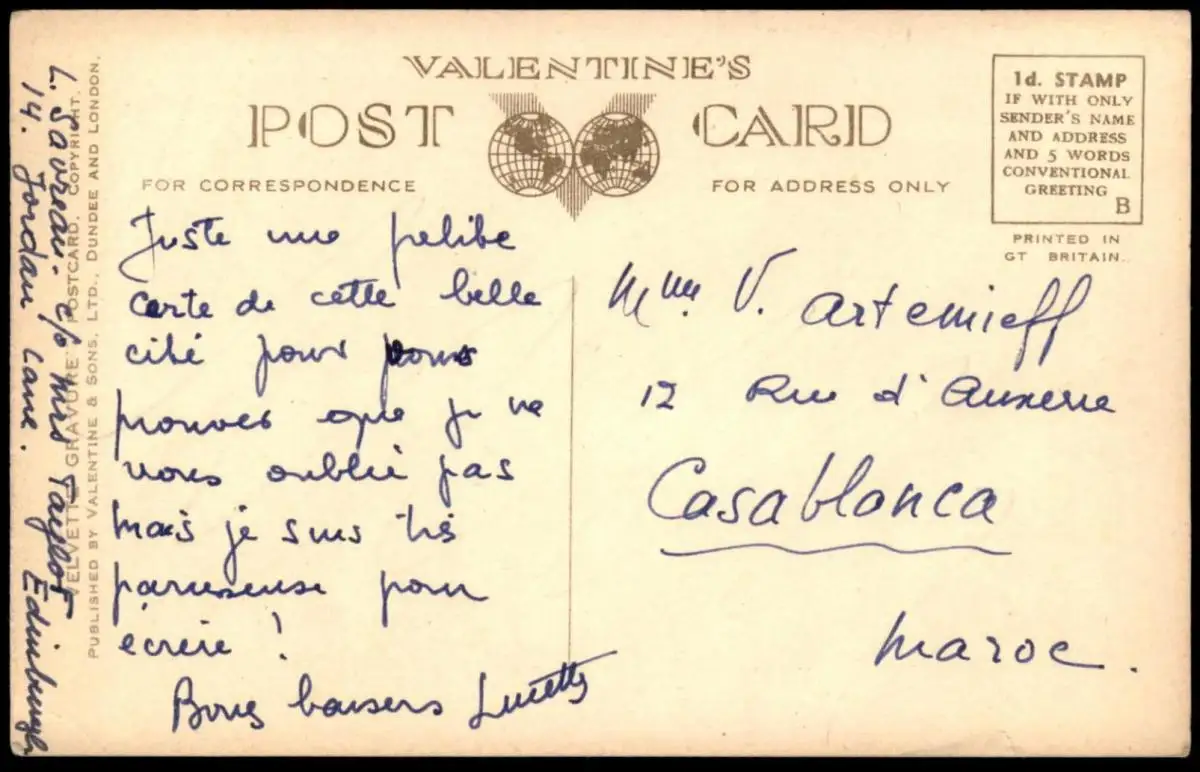 VALENTINE'S
POST CARD
FOR CORRESPONDENCE
FOR ADDRESS ONLY
1d. STAMP
IF WITH ONLY
SENDER'S NAME
AND ADDRESS
AND 5 WORDS
CONVENTIONAL
GREETING
B
PRINTED IN
GT BRITAIN.
Juste une petite
carte de cette belle
cité pour vous
prouver que je ne
vous oublie pas
mais je suis très
paresseuse pour
écrire !
Bons baisers Lucette
Mme. V. Artemieff
12 Rue d'Auxerre
Casablanca
Maroc.
L. Savreau. c/o Mrs Taylor
14. Jordan Lane. Edinburgh
"VELVETTE GRAVURE" POSTCARD. COPYRIGHT.
PUBLISHED BY VALENTINE & SONS, LTD., DUNDEE AND LONDON.